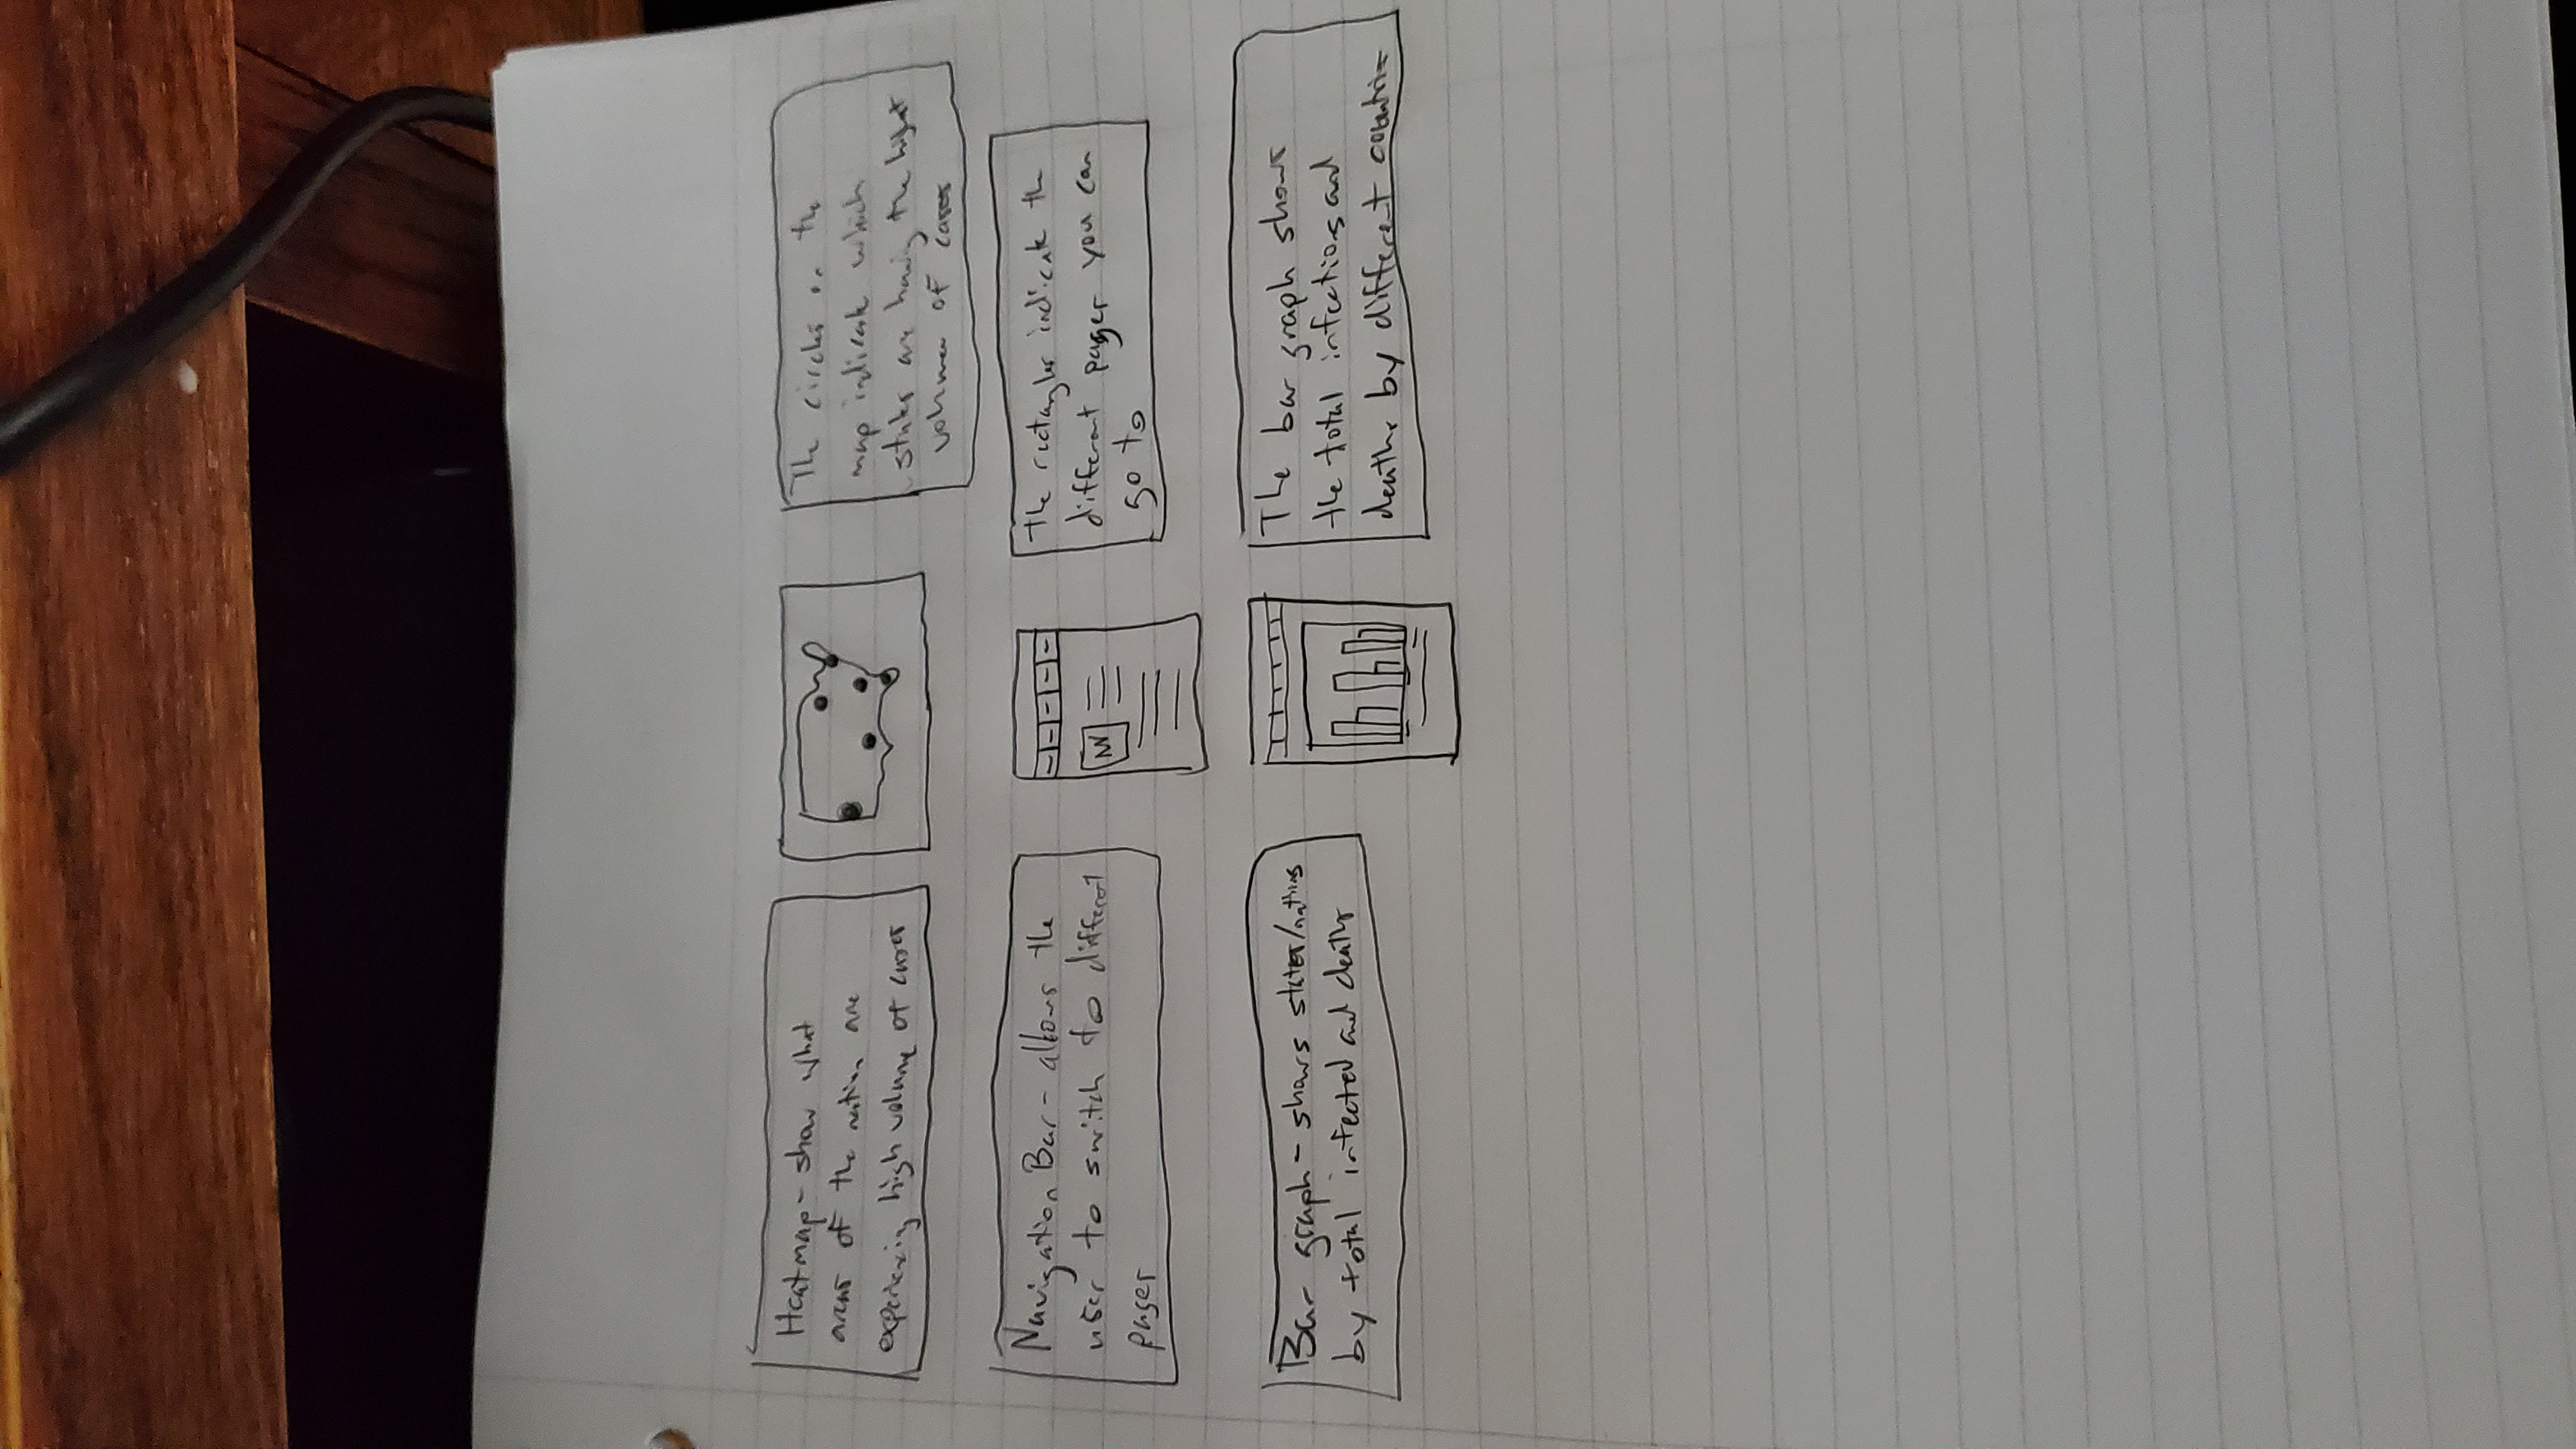 Heatmap - show what
areas of the nation are
experiencing high volume of cases
The circles on the
map indicate which
states are having the highest
volumes of cases
Navigation Bar - allows the
user to switch to different
pages
The rectangles indicate the
different pages you can
go to
Bar graph - shows states/nations
by total infected and deaths
The bar graph shows
the total infections and
deaths by different countries